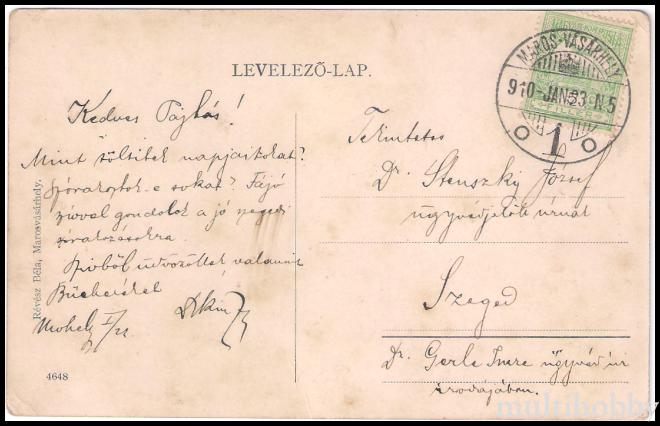 LEVELEZŐ-LAP.
MAGYAR KIR. POSTA
MAROS-VÁSÁRHELY
910-JAN.23.N5
1
Kedves Pajtás!
Mint töltitek napjaitokat?
Szórakoztok-e sokat? Fájó
szívvel gondolok a jó szegedi
szórakozásokra.
Szívből üdvözöllek valamint
Mvhely I/22
Révész Béla, Marosvásárhely.
4648
Tekintetes
Dr. Stenszky József
ügyvédjelölt úrnak
Szeged
Dr. Gerle Imre ügyvéd úr
irodájában.
multihobby